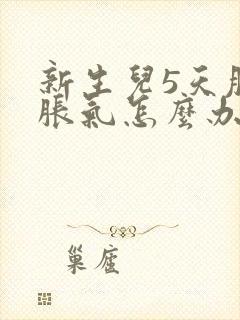 新生兒5天
脹氣怎麼办
巢窟